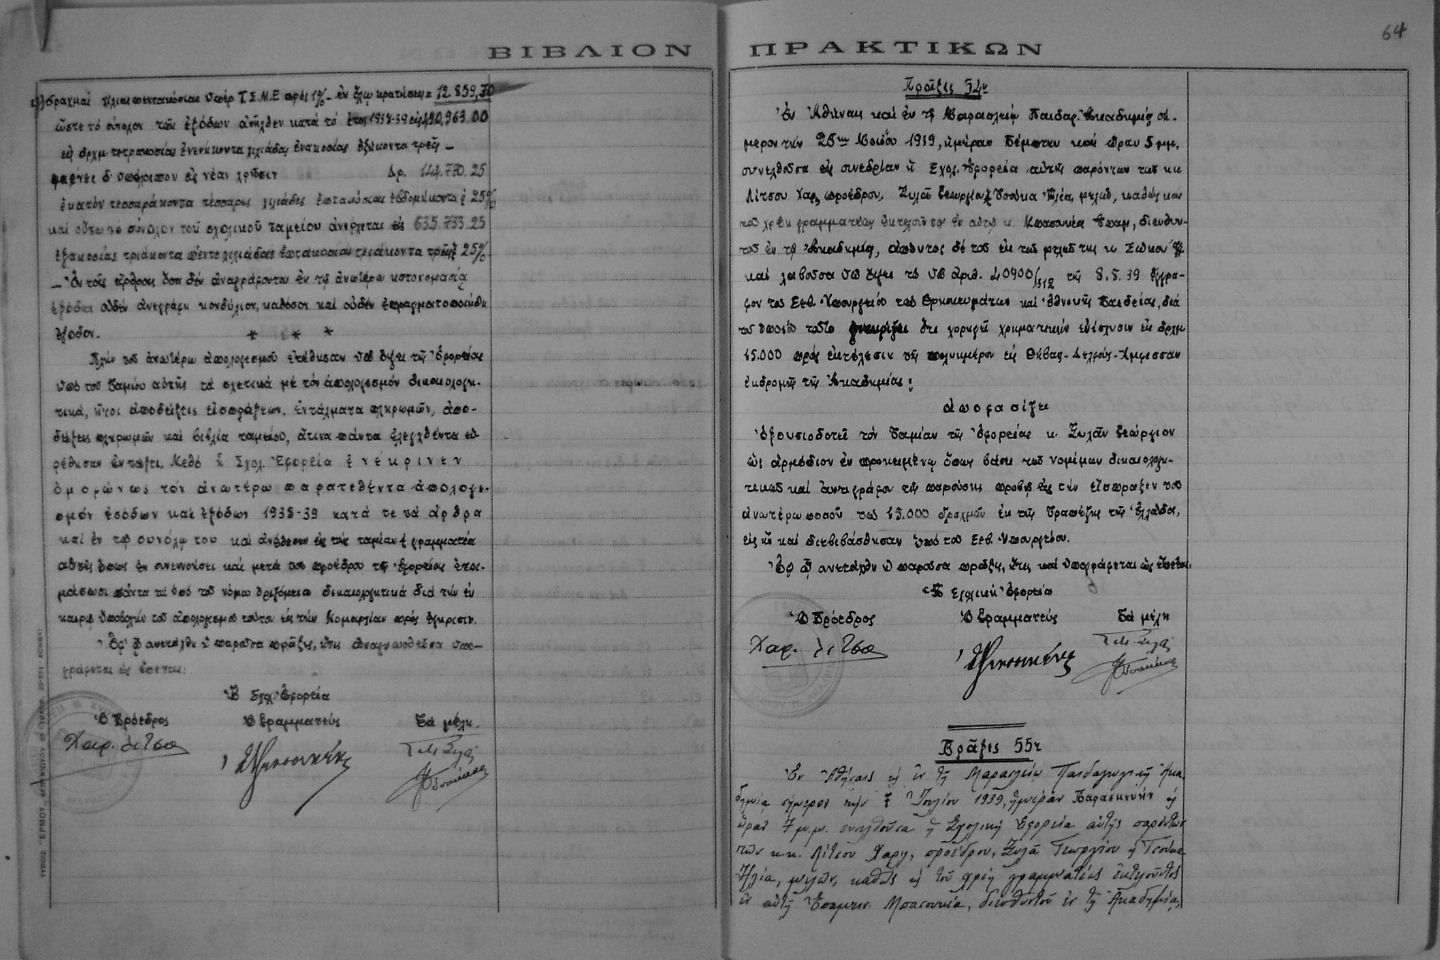 ΒΙΒΛΙΟΝ
δραχμαί χίλιαι πεντακόσιαι ὑπέρ Τ.Σ.Μ.Ε πρός 1% - ἐν ὅλῳ κρατήσεις = 12.859,70
ὥστε τό σύνολον τῶν ἐξόδων ἀνῆλθεν κατά τό ἔτος 1938-39 εἰς 490,963.00
εἰς δρχμ τετρακοσίας ἐνενήκοντα χιλιάδας ἐνακοσίας ἑξήκοντα τρεῖς -
δ' ὑπόλοιπον εἰς νέαν χρῆσιν Δρ. 144.770.25
ἑκατόν τεσσαράκοντα τέσσαρες χιλιάδες ἑπτακόσιαι ἑβδομήκοντα & 25%
καί οὕτω τό σύνολον τοῦ σχολικοῦ ταμείου ἀνέρχεται εἰς 635.733.25
ἑξακοσίας τριάκοντα πέντε χιλιάδας ἑπτακοσίας τριάκοντα τρεῖς & 25%
- Ἐν τοῖς ἄρθροις ὅσα δέν ἀναγράφονται ἐν τῇ ἀνωτέρω κατονομασίᾳ
ἐξόδων οὐδέν ἀνεγράφη κονδύλιον, καθόσον καί οὐδέν ἐπραγματοποιήθη
ἔξοδον. * * *
Πλήν τοῦ ἀνωτέρω ἀπολογισμοῦ ἐτέθησαν ὑπ' ὄψει τῆς Ἐφορείας
ὑπό τοῦ Ταμίου αὐτῆς τά σχετικά μέ τόν ἀπολογισμόν δικαιολογη-
τικά, ἤτοι ἀποδείξεις εἰσπράξεων, ἐντάλματα πληρωμῶν, ἀπο-
δείξεις πληρωμῶν καί βιβλία ταμείου, ἅτινα πάντα ἐλεγχθέντα εὑ-
ρέθησαν ἐν τάξει. Μεθ' ὅ ἡ Σχολ. Ἐφορεία ἐνέκρινεν
ὁμοφώνως τόν ἀνωτέρω παρατεθέντα ἀπολογι-
σμόν ἐσόδων καί ἐξόδων 1938-39 κατά τε τά ἄρθρα
καί ἐν τῷ συνόλῳ του καί ἀνέθεσεν εἰς τόν ταμίαν & γραμματέα
αὐτῆς ὅπως ἐν συνεννοήσει καί μετά τοῦ προέδρου τῆς Ἐφορείας ἑτοι-
μάσωσι πάντα τά ὑπό τοῦ νόμου ὁριζόμενα δικαιολογητικά διά τήν ἐν
καιρῷ ὑποβολήν τοῦ ἀπολογισμοῦ τούτου εἰς τήν Νομαρχίαν πρός ἔγκρισιν.
Ἐφ' ᾧ συνετάχθη ἡ παροῦσα πρᾶξις, ἥτις ἀναγνωσθεῖσα ὑπο-
γράφεται ὡς ἕπεται:
Ἡ Σχολ. Ἐφορεία
Ὁ Πρόεδρος Ὁ Γραμματεύς Τά μέλη.
Χαρ. Λίτσας
ΠΡΑΚΤΙΚΩΝ
64
Πρᾶξις 54η
Ἐν Ἀθήναις καί ἐν τῇ Μαρασλείῳ Παιδαγ. Ἀκαδημίᾳ σή-
μερον τήν 25ην Μαΐου 1939, ἡμέραν Πέμπτην καί ὥραν 5 μμ.
συνελθοῦσα εἰς συνεδρίαν ἡ Σχολ. Ἐφορεία αὐτῆς παρόντων τῶν κκ
Λίτσου Χαρ. προέδρου, Ξυλᾶ Γεωργίου & Τσούκα Ἠλία, μελῶν, καθώς καί
τοῦ χρέη γραμματέως ἐκτελοῦντος ἐν αὐτῇ κ. Μπασουκέα Ἐπαμ, διευθυν-
τοῦ ἐν τῇ Ἀκαδημίᾳ, ἀπόντος δέ τοῦ ἐκ τῶν μελῶν της κ.
καί λαβοῦσα ὑπ' ὄψει τό ὑπ' ἀριθ. 40900/ τῆς 8.5.39 ἔγγρα-
φον τοῦ Σεβ. Ὑπουργείου τῶν Θρησκευμάτων καί Ἐθνικῆς Παιδείας, διά
τοῦ ὁποίου τοῦτο γνωρίζει ὅτι χορηγεῖ χρηματικήν ἐνίσχυσιν ἐκ δρχμ
15.000 πρός ἐκτέλεσιν τῆς πολυημέρου εἰς Θήβας-Δελφούς-Ἄμφισσαν
ἐκδρομῆς τῆς Ἀκαδημίας:
ἀποφασίζει
Ἐξουσιοδοτεῖ τόν Ταμίαν τῆς Ἐφορείας κ. Ξυλᾶν Γεώργιον
ὡς ἁρμόδιον ἐν προκειμένῳ ὅπως βάσει τῶν νομίμων δικαιολογη-
τικῶν καί ἀντιγράφου τῆς παρούσης προβῇ εἰς τήν εἴσπραξιν τοῦ
ἀνωτέρω ποσοῦ τῶν 15.000 δραχμῶν ἐκ τῆς Τραπέζης τῆς Ἑλλάδος,
εἰς ἥν καί διεβιβάσθησαν ὑπό τοῦ Σεβ. Ὑπουργείου.
Ἐφ' ᾧ συνετάχθη ἡ παροῦσα πρᾶξις, ἥτις καί ὑπογράφεται ὡς ἕπεται.
Ἡ Σχολική Ἐφορεία
Ὁ Πρόεδρος Ὁ Γραμματεύς Τά μέλη
Χαρ. Λίτσας
Πρᾶξις 55η
Ἐν Ἀθήναις & ἐν τῇ Μαρασλείῳ Παιδαγωγικῇ Ἀκα-
δημίᾳ σήμερον τήν 7 Ἰουλίου 1939, ἡμέραν Παρασκευήν &
ὥραν 7 μ.μ. συνελθοῦσα ἡ Σχολική Ἐφορεία αὐτῆς παρόντων
τῶν κ.κ. Λίτσου Χαρ, προέδρου, Ξυλᾶ Γεωργίου & Τσούκα
Ἠλία, μελῶν, καθώς & τοῦ χρέη γραμματέως ἐκτελοῦντος
ἐν αὐτῇ Ἐπαμειν. Μπασουκέα, διευθυντοῦ ἐν τῇ Ἀκαδημίᾳ,